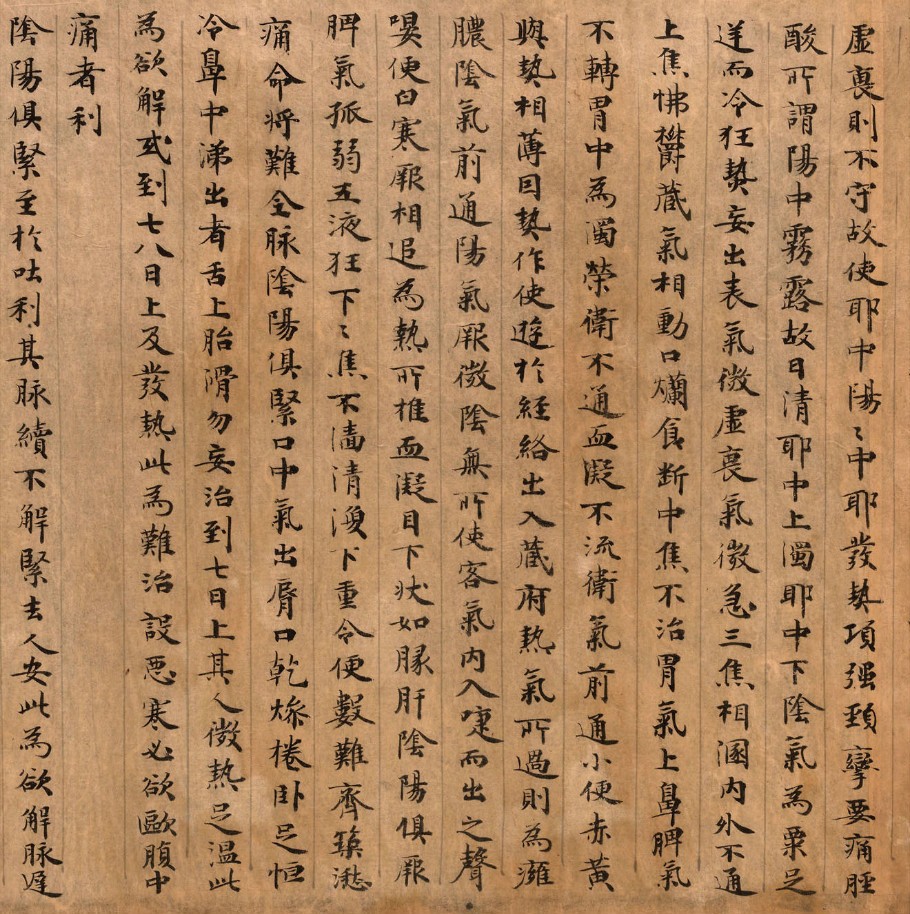 虛裏則不守故使耶中陽〻中耶發熱項强頚攣要痛脛
酸所謂陽中霧露故曰清耶中上濁耶中下陰氣為栗足
逆而冷狂熱妄出表氣微虛裏氣微急三焦相溷内外不通
上焦怫欝蔵氣相動口爛食断中焦不治胃氣上鼻脾氣
不轉胃中為濁榮衛不通血凝不流衛氣前通小便赤黄
與熱相薄因熱作使遊於経絡出入蔵府熱氣所過則為癕
膿陰氣前通陽氣厥微陰無所使客氣内入嚏而出之聲
嗢便臼寒厥相追為熱所推血凝目下状如豚肝陰陽俱厥
脾氣孤弱五液狂下〻焦不濇清溲下重令便數難齊築湫
痛命将難全脉陰陽俱緊口中氣出脣口乾燥捲卧足恒
冷鼻中涕出者舌上胎滑勿妄治到七日上其人微熱足温此
為欲解或到七八日上及發熱此為難治設惡寒必欲歐腹中
痛者利
陰陽俱緊至於吐利其脉續不解緊去人安此為欲解脉遅